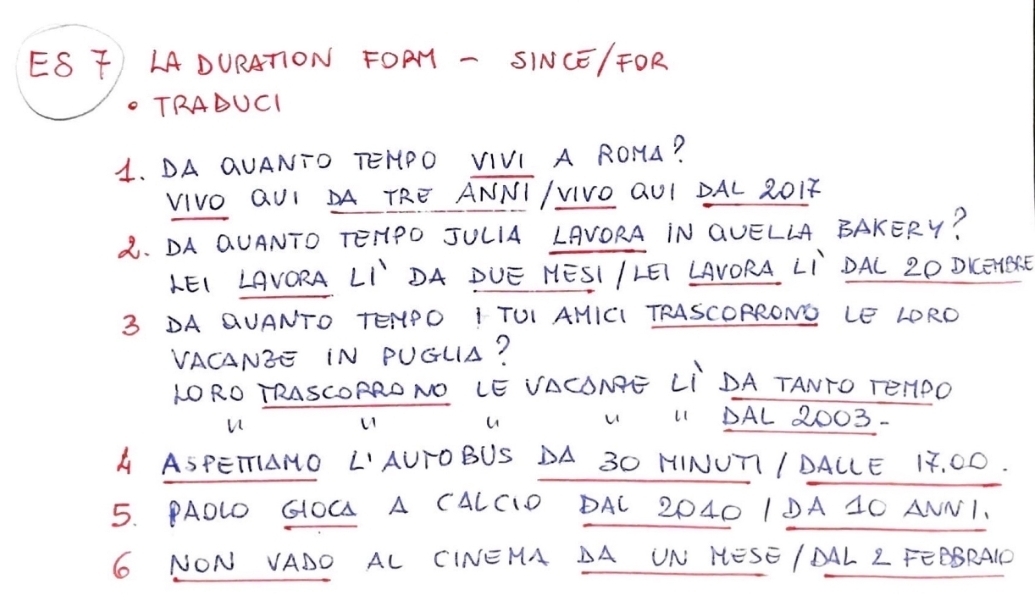 ES 7 LA DURATION FORM - SINCE/FOR
• TRADUCI
1. DA QUANTO TEMPO VIVI A ROMA?
VIVO QUI DA TRE ANNI/VIVO QUI DAL 2017
2. DA QUANTO TEMPO JULIA LAVORA IN QUELLA BAKERY?
LEI LAVORA LÌ DA DUE MESI/LEI LAVORA LÌ DAL 20 DICEMBRE
3 DA QUANTO TEMPO I TUI AMICI TRASCORRONO LE LORO
VACANZE IN PUGLIA?
LORO TRASCORRONO LE VACANZE LÌ DA TANTO TEMPO
" " " " " DAL 2003-
4 ASPETTIAMO L'AUTOBUS DA 30 MINUTI/DALLE 17.00.
5. PAOLO GIOCA A CALCIO DAL 2010 / DA 10 ANNI.
6 NON VADO AL CINEMA DA UN MESE/DAL 2 FEBBRAIO